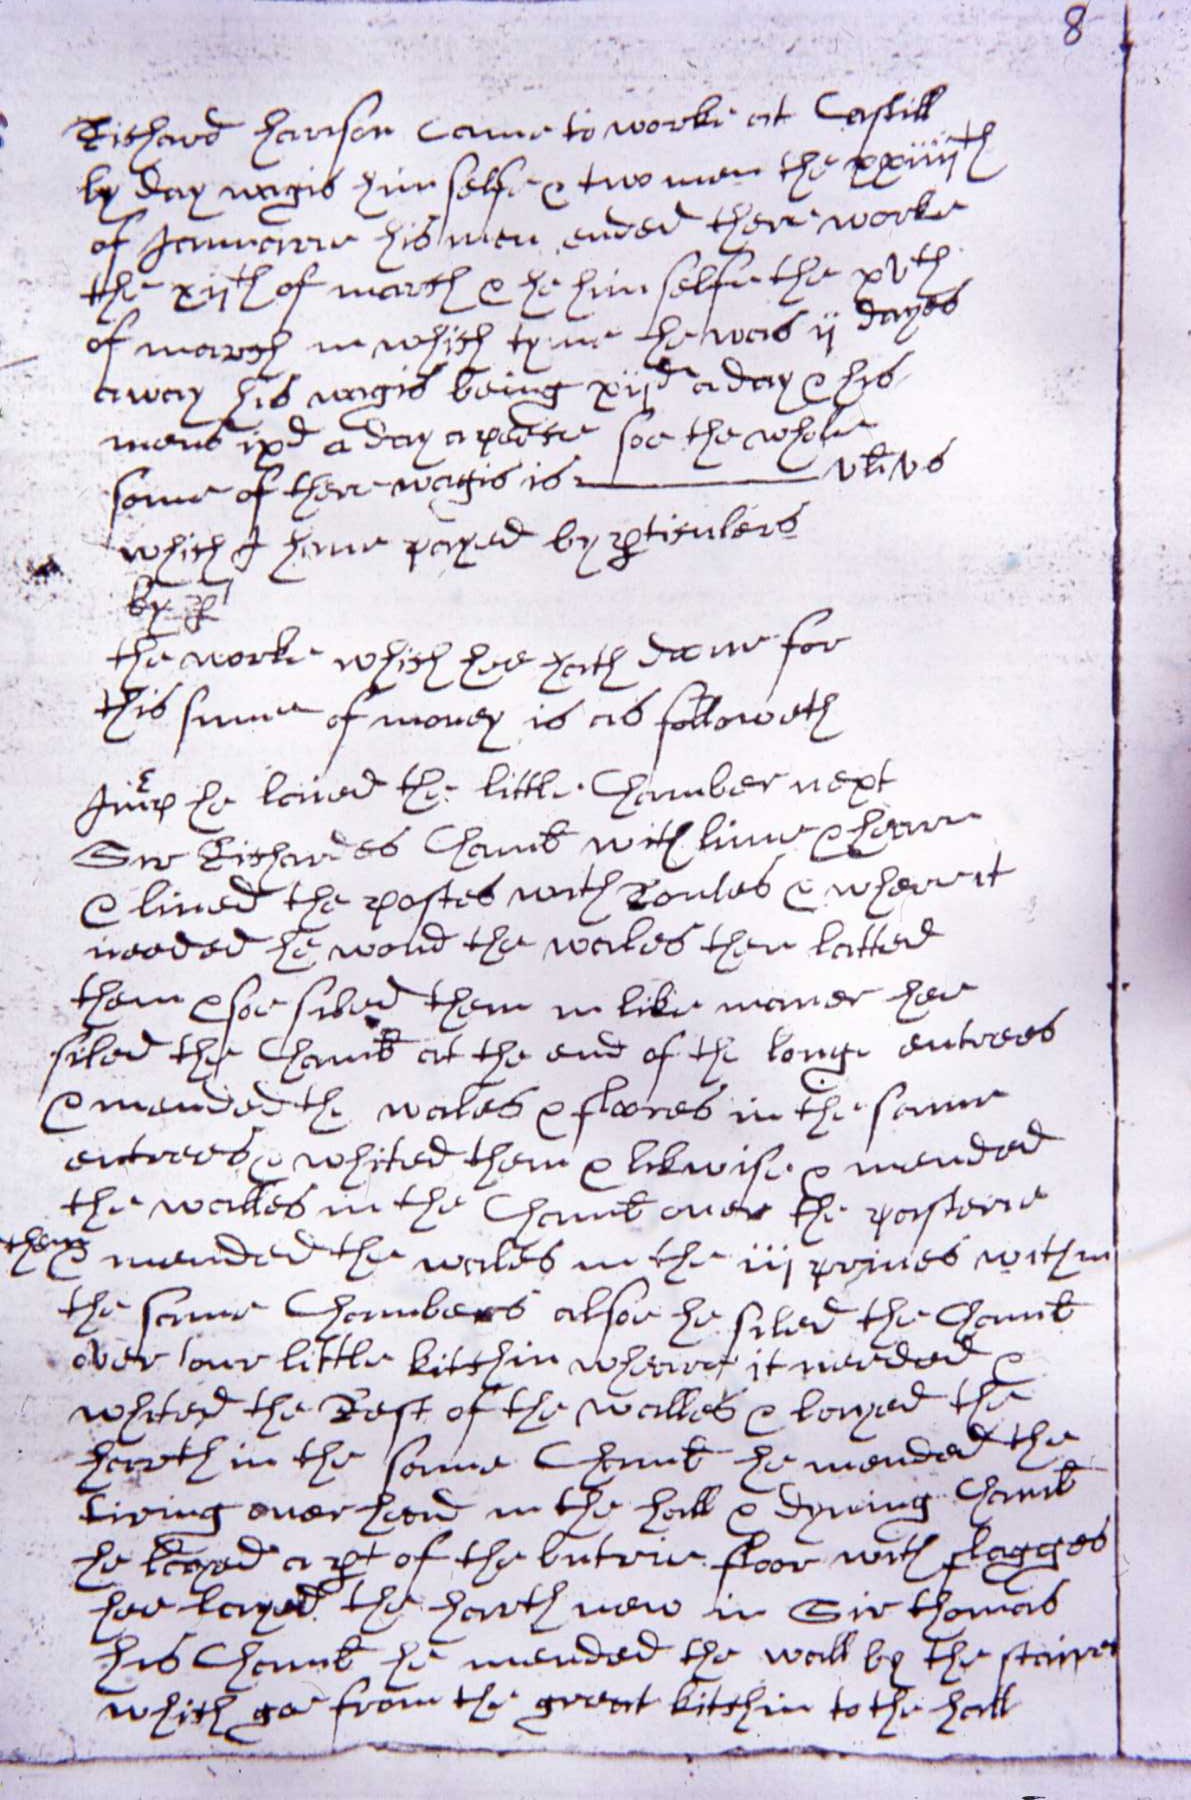 8
Richard harison Came to worke at Castill
by day wagis him selfe & two men the xxiiijth
of Januarie his men ended there worke
the xijth of march & he him selfe the xvth
of march in which tyme he was ij dayes
away his wagis being xijd a day & his
mens ixd a day a peece soe the whole
some of there wagis is vli vs
which I haue payed by pticulers
by p
the worke which hee hath done for
this summe of money is as followeth
Imp he the little Chamber next
Sir Richardes Chamb with lime & heare
& lined the postes with & wheare it
needed he wond the wales then latted
them & soe siled them in like maner hee
siled the Chamb at the end of the longe entrees
& mended the wales & floores in the same
entrees & whited them & likwise & mended
the walles in the Chamb ouer the pasterie
them & mended the wales in the iij priues within
the same Chambers alsoe he siled the Chamb
over our little kitchin wheare it needed &
whited the Rest of the walles & layed the
harth in the same Chamb he mended the
over head in the hall & dyning Chamb
he layed a pt of the butrie floor with flagges
hee layed the harth new in Sir thomas
his Chamb he mended the wall by the staires
which goe from the great kitchin to the hall